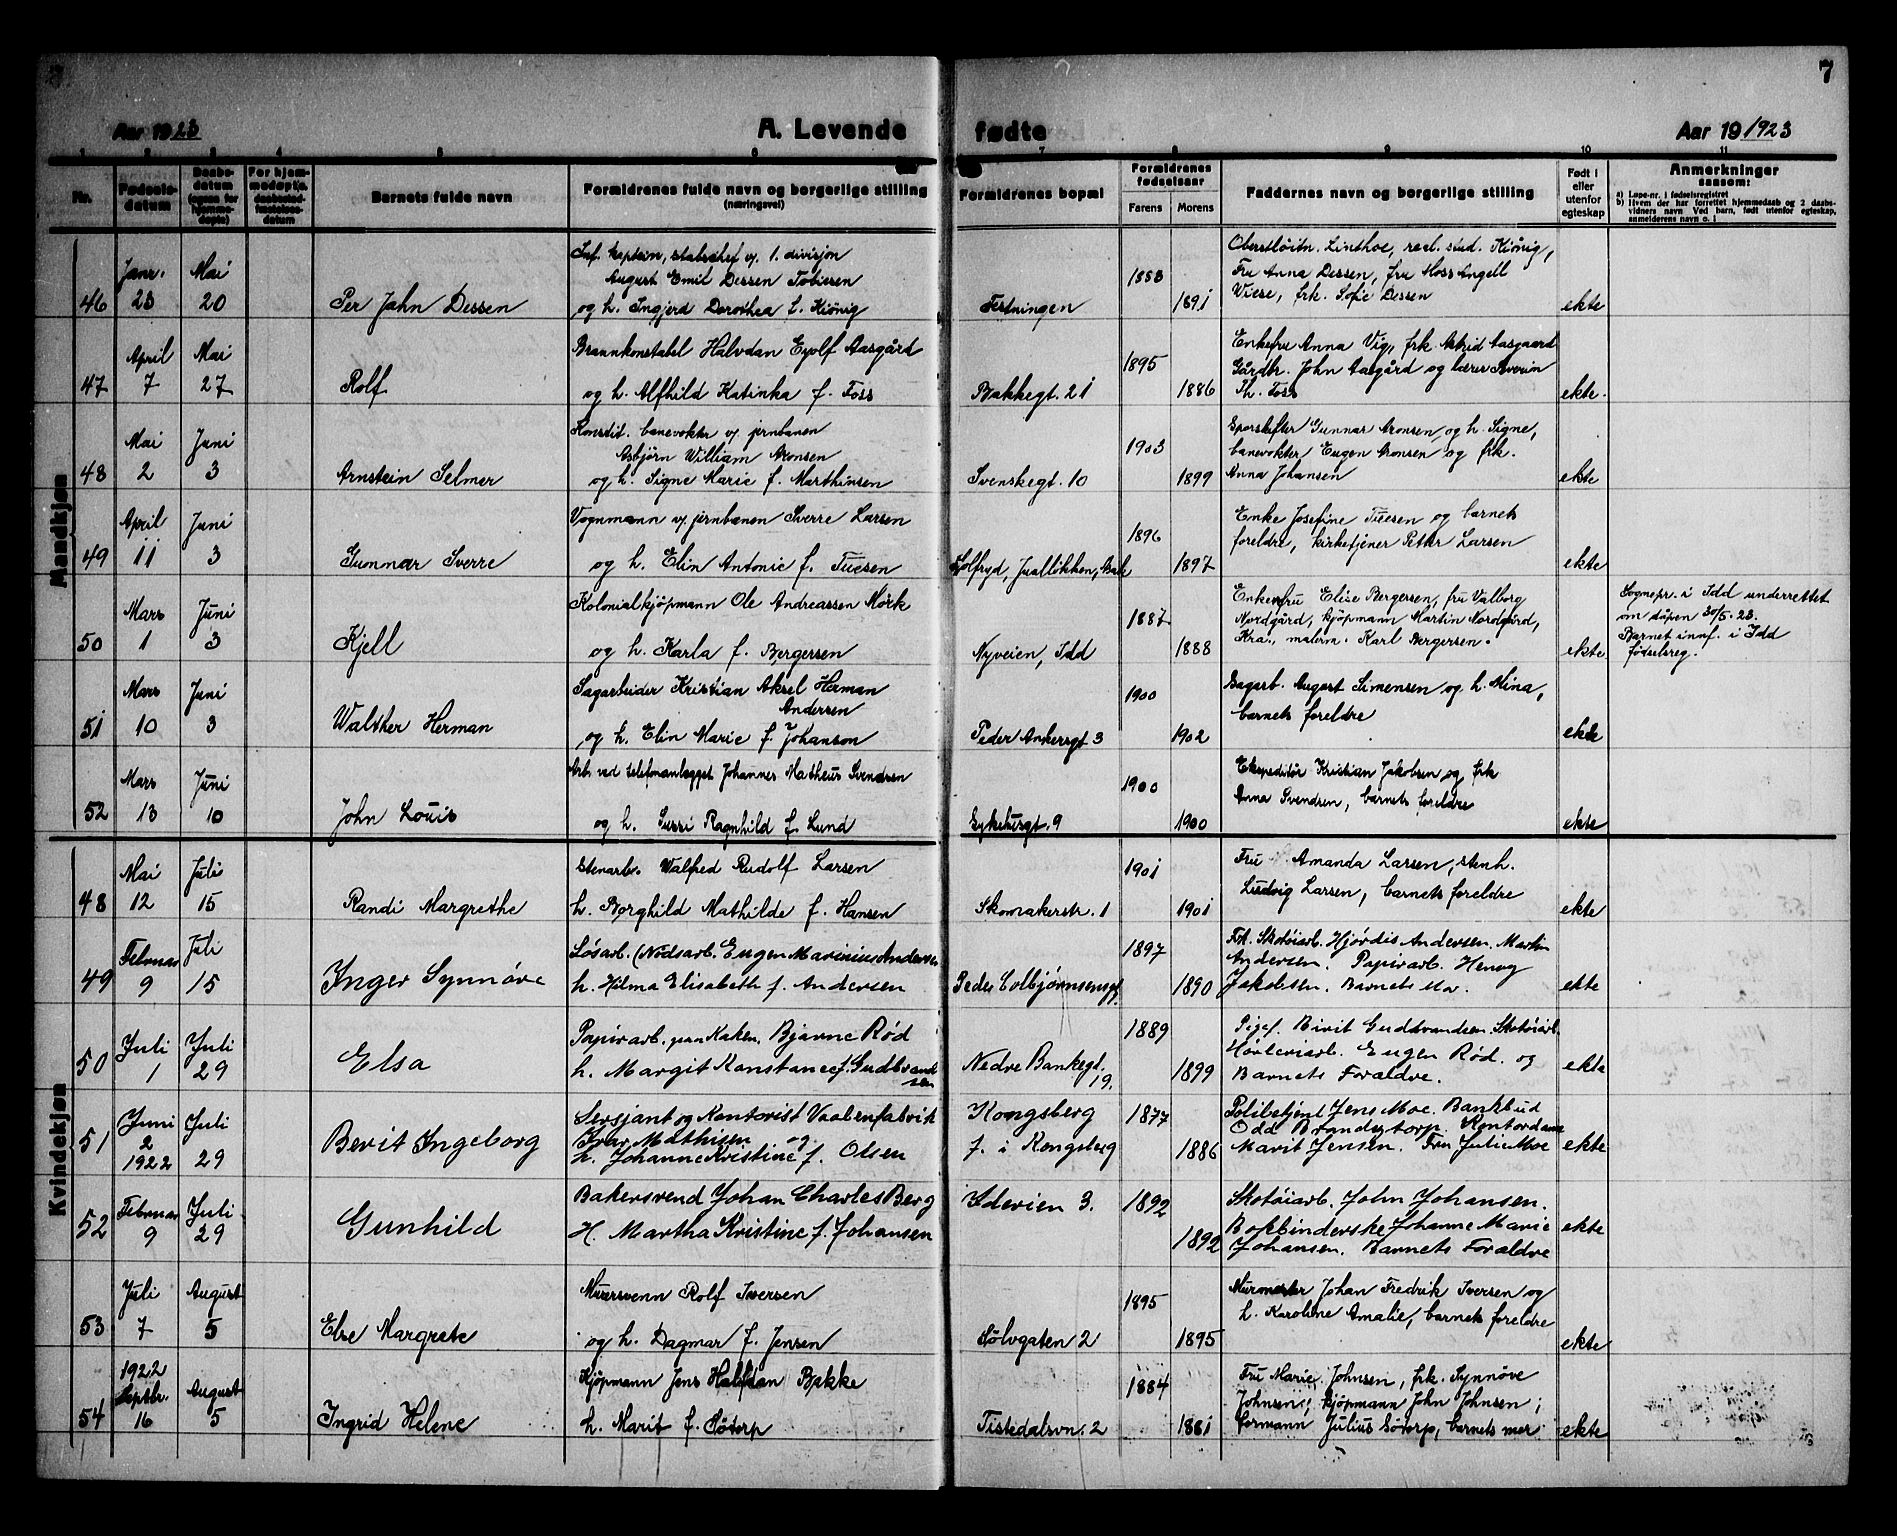 7
Aar 1923
A. Levende
fødte
Aar 19 1923
1 2 3 4 5 6 7 8 9 10 11
Nr.
Fødsels-
datum
Daabs-
datum
(ogsaa for
hjemme-
døpte)
For hjem-
medøpte,
daabsstad-
fæstelses-
datum
Barnets fulde navn
Forældrenes fulde navn og borgerlige stilling
(næringsvei)
Forældrenes bopæl
Forældrenes
fødselsaar
Farens Morens
Faddernes navn og borgerlige stilling
Født i
eller
utenfor
egteskap
Anmerkninger
saasom:
a) Løpe-nr. i fødselsregistret
b) Hvem der har forrettet hjemmedaab og 2 daabs-
vidners navn Ved barn, født utenfor egteskap,
anmelderens navn o. l
Mandkjøn
46
Janr.
23
Mai
20
Per Jahn Dessen
Inf. kaptein, stabschef v. 1. divisjon
August Emil Dessen Tobiesen
og h. Ingjerd Dorothea f. Kiønig
Festningen
1883
1891
Oberstløitn. Linthoe, real. stud. Kiønig,
Fru Anna Dessen, fru Moss Angell
Wiese, frk. Sofie Dessen
ekte
47
April
7
Mai
27
Rolf
Brannkonstabel Halvdan Eyolf Aasgård
og h. Alfhild Katinka f. Foss
Bakkegt. 21
1895
1886
Enkefru Anna Vig, frk Astrid Aasgaard
Gårdbr. John Aasgård og lærer Severin
Th. Foss
ekte.
48
Mai
2
Juni
3
Arnstein Selmer
Konstit. banevokter v/ jernbanen
Asbjörn William Aronsen
og h. Signe Marie f. Marthinsen
Svenskegt. 10
1903
1899
Sporskifter Gunnar Aronsen og h. Signe,
banevokter Eugen Aronsen og frk.
Anna Johansen
ekte
49
April
11
Juni
3
Gunnar Sverre
Vognmann v/ jernbanen Sverre Larsen
og h. Elin Antonie f. Tuesen
1896
1897
Enke Josefine Tuesen og barnets
foreldre, kirketjener Petter Larsen
ekte
50
Mars
1
Juni
3
Kjell
Kolonialkjøpmann Ole Andreassen Mørk
og h. Karla f. Bergersen
Nyveien, Idd
1887
1888
Enkefru Elise Bergersen, fru Valborg
Nordgård, kjøpmann Martin Nordgård,
Kra., malerm. Karl Bergersen.
ekte
Sognepr. i Idd underrettet
om dåpen 30/5. 23.
Barnet innf. i Idd
fødselsreg.
51
Mars
10
Juni
3
Walther Herman
Sagarbeider Kristian Aksel Herman
Andersen
og h. Elin Marie f. Johanson
Peder Ankersgt 3
1900
1902
Sagarb. August Simensen og h. Mina,
barnets foreldre
ekte
52
Mars
13
Juni
10
John Louis
Arb. ved telefonanlegget Johannes Matheus Svendsen
og h. Sussi Ragnhild f. Lund
Sykehusgt. 9
1900
1900
Ekspeditør Kristian Jakobsen og frk
Anna Svendsen, barnets foreldre
ekte
Kvindekjøn
48
Mai
12
Juli
15
Randi Margrethe
Stenarb. Walfred Rudolf Larsen
h. Borghild Mathilde f. Hansen
Skomakerstr. 1
1901
1901
Fru Amanda Larsen, stenh.
Ludvig Larsen, barnets foreldre
ekte
49
Februar
9
Juli
15
Inger Synnøve
Løsarb. (Nødsarb. Eugen Marinius Andersen
h. Hilma Elisabeth f. Andersen
Peder Colbjørnsensgt
1897
1890
Frk. Skotøiarb. Hjørdis Andersen. Martin
Andersen. Papirarb. Henry
Jakobsen. Barnets Mor.
ekte
50
Juli
1
Juli
29
Elsa
Papirarb. paa Saken. Bjarne Rød
h. Margit Konstance f. Gudbrand
sen
Nedre Bankegt.
19.
1889
1899
Pigef. Birit Gudbrandsen Skotøiarb.
Høvleriarb. Eugen Rød. og
Barnets Foraldre.
ekte
51
Juni
2
1922
Juli
29
Berit Ingeborg
Sersjant og Kontorist Vaabenfabrik
Ivar Mathisen og
h. Johanne Kristine f. Olsen
Kongsberg
f. i Kongsberg
1877
1886
Politibetjent Jens Moe. Bankbud
Odd Brandstorp. Kontordame
Marit Jensen. Fru Julie Moe
ekte
52
Februar
9
Juli
29
Gunhild
Bakersvend Johan Charles Berg
H. Martha Kristine f. Johansen
Iddeveien 3.
1892
1892
Skotøiarb. John Johansen.
Bokbinderske Johanne Marie
Johansen. Barnets Foraldre
ekte
53
Juli
7
August
5
Else Margrete
Murersvenn Rolf Iversen
og h. Dagmar f. Jensen
Sølvgaten 2
1895
1895
Murmester Johan Fredrik Iversen og
h. Karoline Amalie, barnets foreldre
ekte
54
1922
Septbr.
16
August
5
Ingrid Helene
Kjøpmann Jens Halfdan Bakke
h. Marit f. Søtorp
Tistedalsvn. 2
1884
1881
Fru Marie Johnsen, frk. Synnöve
Johnsen, kjøpmann John Johnsen,
formann Julius Sötorp, barnets mor
ekte